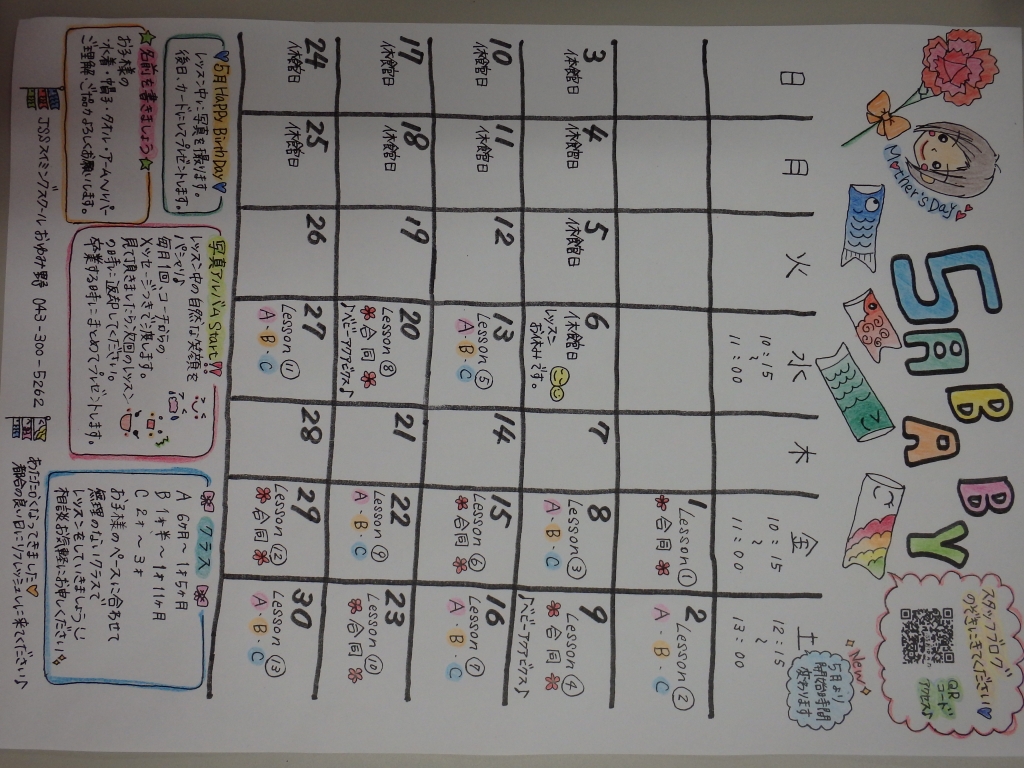 5月 BABY
Mother's Day
スタッフブログ
のぞきにきてください
QR
コード
アクセス♪
New
5月より
開始時間
変わります
日 月 火 水 木 金 土
10:15
〜
11:00
10:15
〜
11:00
12:15
〜
13:00
1 Lesson①
合同
2 Lesson②
A・B・C
3
休館日
4
休館日
5
休館日
6
休館日
レッスン
お休みです。
7
8 Lesson③
A・B・C
9 Lesson④
合同
♪ベビーアクアビクス♪
10
休館日
11
休館日
12
13 Lesson⑤
A・B・C
14
15 Lesson⑥
合同
16 Lesson⑦
A・B・C
17
休館日
18
休館日
19
20 Lesson⑧
合同
♪ベビーアクアビクス♪
21
22 Lesson⑨
A・B・C
23 Lesson⑩
合同
24
休館日
25
休館日
26
27 Lesson⑪
A・B・C
28
29 Lesson⑫
合同
30 Lesson⑬
A・B・C
5月 Happy Birth Day
レッスン中に写真を撮ります。
後日、カードにしてプレゼントします。
★名前を書きましょう★
お子様の
水着・帽子・タオル・アームヘルパー
ご理解・ご協力よろしくお願いします。
写真アルバム Start!!
レッスン中の自然な笑顔を
パシャリ♪
毎月1回、コーチからの
メッセージつきでお渡します。
見て頂きましたら次回のレッスン
の時に返却してください。
卒業する時にまとめてプレゼントします。
クラス
A 6ヶ月〜1才5ヶ月
B 1才半〜1才11ヶ月
C 2才〜3才
お子様のペースに合わせて
無理のないクラスで
レッスンをしていきましょう!!
相談お気軽にお申しください!!
JSSスイミングスクールおゆみ野 043-300-5262
あたたかくなってきました♡
都合の良い日にリフレッシュしに来てください♪